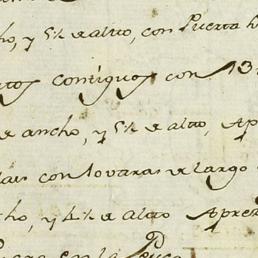 ho, y 5½ de alto, con Puerta
tos contiguos con 13
de ancho, y 5½ de alto, Ap
con 10 varas de largo
ho, y 4½ de alto Aprez
en la